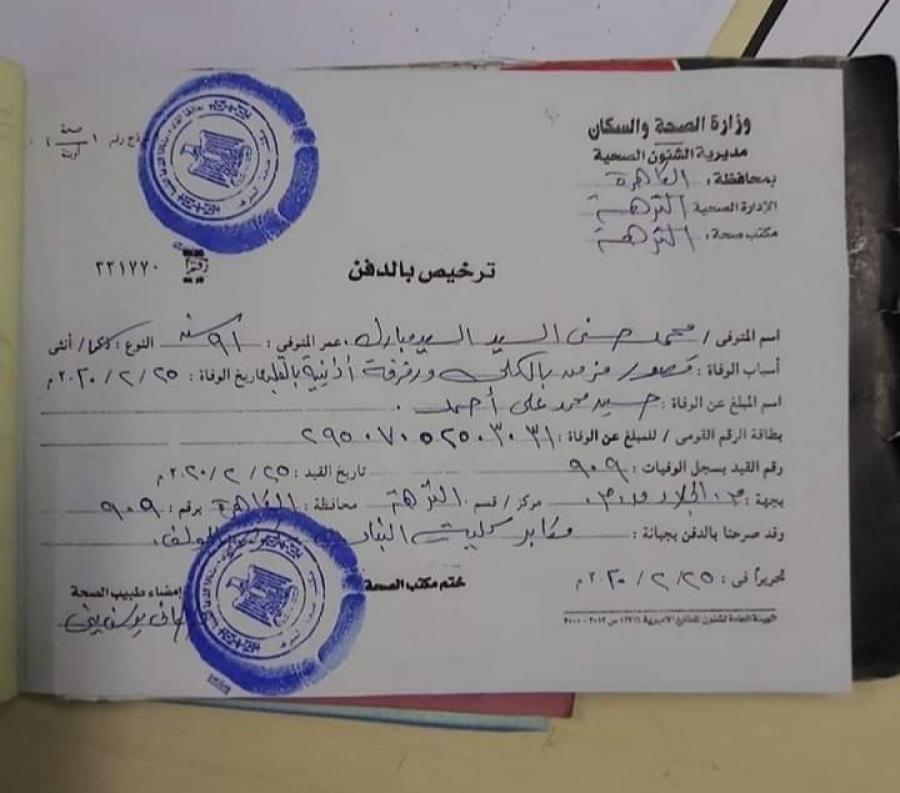 وزارة الصحة والسكان
مديرية الشئون الصحية
بمحافظة : القاهرة
الإدارة الصحية النزهة
مكتب صحة : النزهة
نموذج رقم ١ صحة
رقم ٢٢١٧٧٠
ترخيص بالدفن
اسم المتوفى / محمد حسنى السيد السيد مبارك عمر المتوفي : ٩١ سنة النوع : ذكر / أنثى
أسباب الوفاة : قصور مزمن بالكلى ورفرفة أذنية بالقلب تاريخ الوفاة : ٢٥ / ٢ / ٢٠٢٠ م
اسم المبلغ عن الوفاة : سيد محمد على أحمد
بطاقة الرقم القومى / للمبلغ عن الوفاة : ٢٩٥٠٧٠٥٢٥٠٣٠٣١
رقم القيد بسجل الوفيات : ٩٠٩ تاريخ القيد : ٢٥ / ٢ / ٢٠٢٠ م
بجهة : م . الجلاء مركز / قسم النزهة محافظة : القاهرة برقم : ٩٠٩
وقد صرحنا بالدفن بجبانة : مقابر كلية البنات
تحريرًا فى : ٢٥ / ٢ / ٢٠٢٠ م
ختم مكتب الصحة
إمضاء طبيب الصحة
الهيئة العامة لشئون المطابع الأميرية